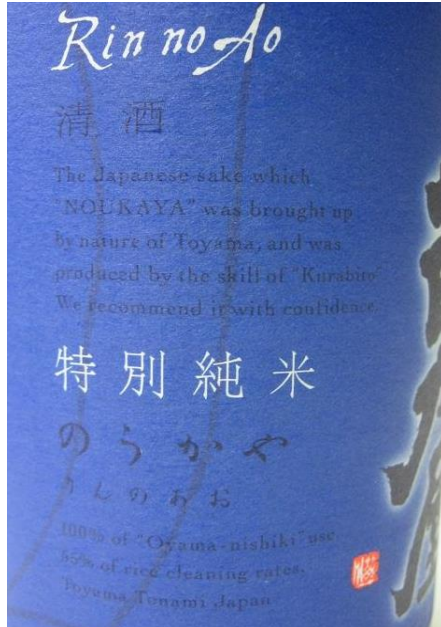 Rin no Ao
清酒
The Japanese sake which
"NOUKAYA" was brought up
by nature of Toyama, and was
produced by the skill of "Kurabito".
We recommend it with confidence.
特別純米
のうかや
りんのあお
100% of "Oyama-nishiki" use
55% of rice cleaning rates.
Toyama Tonami Japan